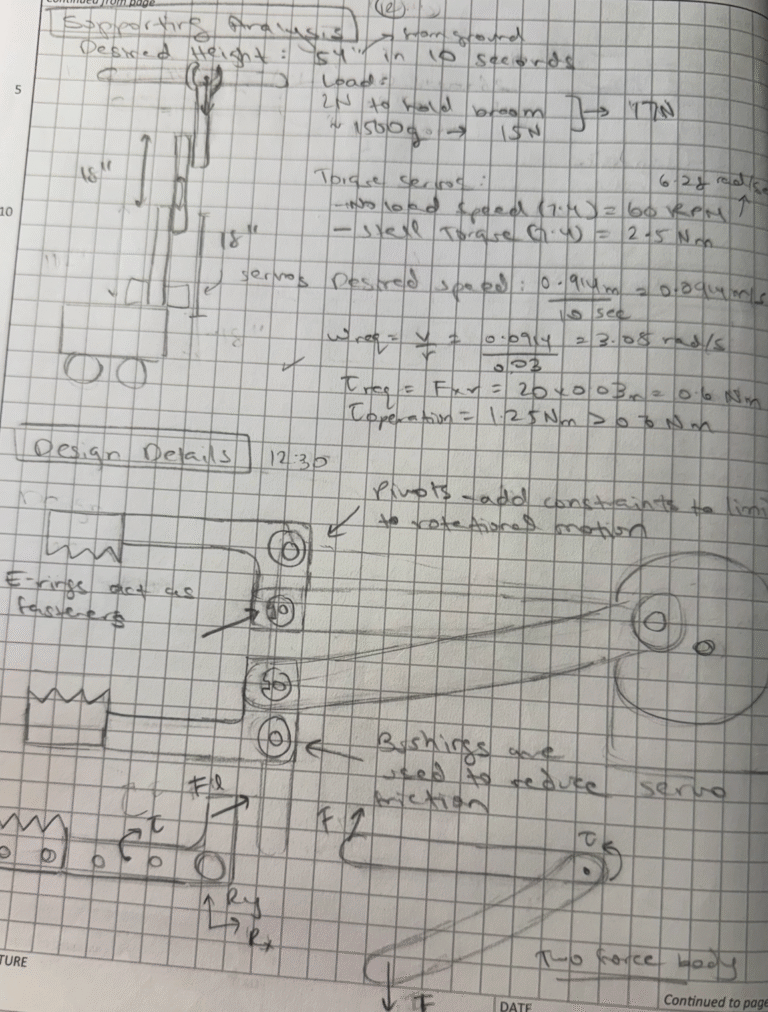 Continued from page
Supporting Analysis
Desired Height: 54" in 10 seconds
→ from ground
5
Load:
2N to hold broom
~ 1500g → 15N
→ 17N
18"
Torque servos:
- no load speed (7.4) = 60 RPM
6.28 rad/s
10
- stall Torque (7.4) = 2.5 Nm
18"
servos
Desired speed: 0.914m / 10 sec = 0.0914 m/s
ωreq = v/r = 0.0914 / 0.03 = 3.05 rad/s
τreq = F×r = 20 × 0.03m = 0.6 Nm
τoperation = 1.25Nm > 0.6 Nm
Design Details
12:30
Pivots - add constraints to limi
to rotational motion
E-rings act as
fasteners
Bushings are
used to reduce
friction
servo
F
τ
F
τ
Ry
Rx
Two force body
F
TURE
DATE
Continued to page